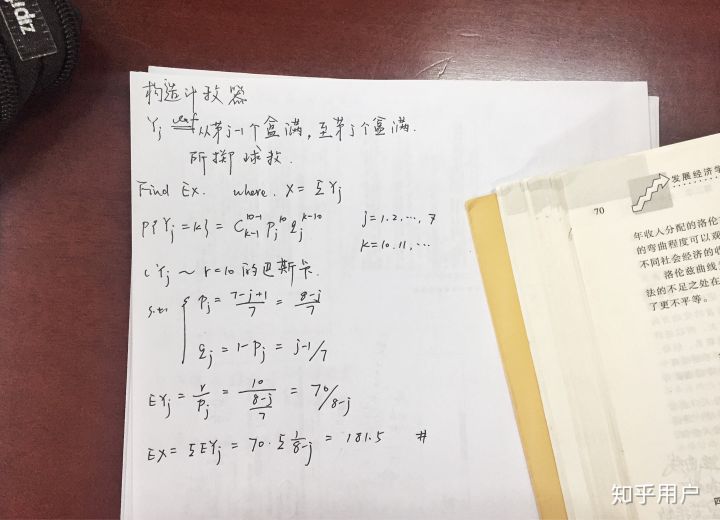 构造计数器
Yj def 从第j-1个盒满,至第j个盒满.
所掷球数.
Find EX. where. X = ΣYj
P{Yj = k} = C_{k-1}^{10-1} p_j^{10} q_j^{k-10} j=1.2.…,7
k=10.11,…
Yj ~ r=10 的巴斯卡.
s.t. { p_j = \frac{7-j+1}{7} = \frac{8-j}{7}
q_j = 1-P_j = j-1/7
EYj = \frac{r}{p_j} = \frac{10}{\frac{8-j}{7}} = 70/8-j
EX = ΣEYj = 70·Σ\frac{1}{8-j} = 181.5 #
发展经济学
70
年收人分配的洛伦
的弯曲程度可以观
不同社会经济的收
洛伦兹曲线
法的不足之处在
了更不平等。
知乎用户